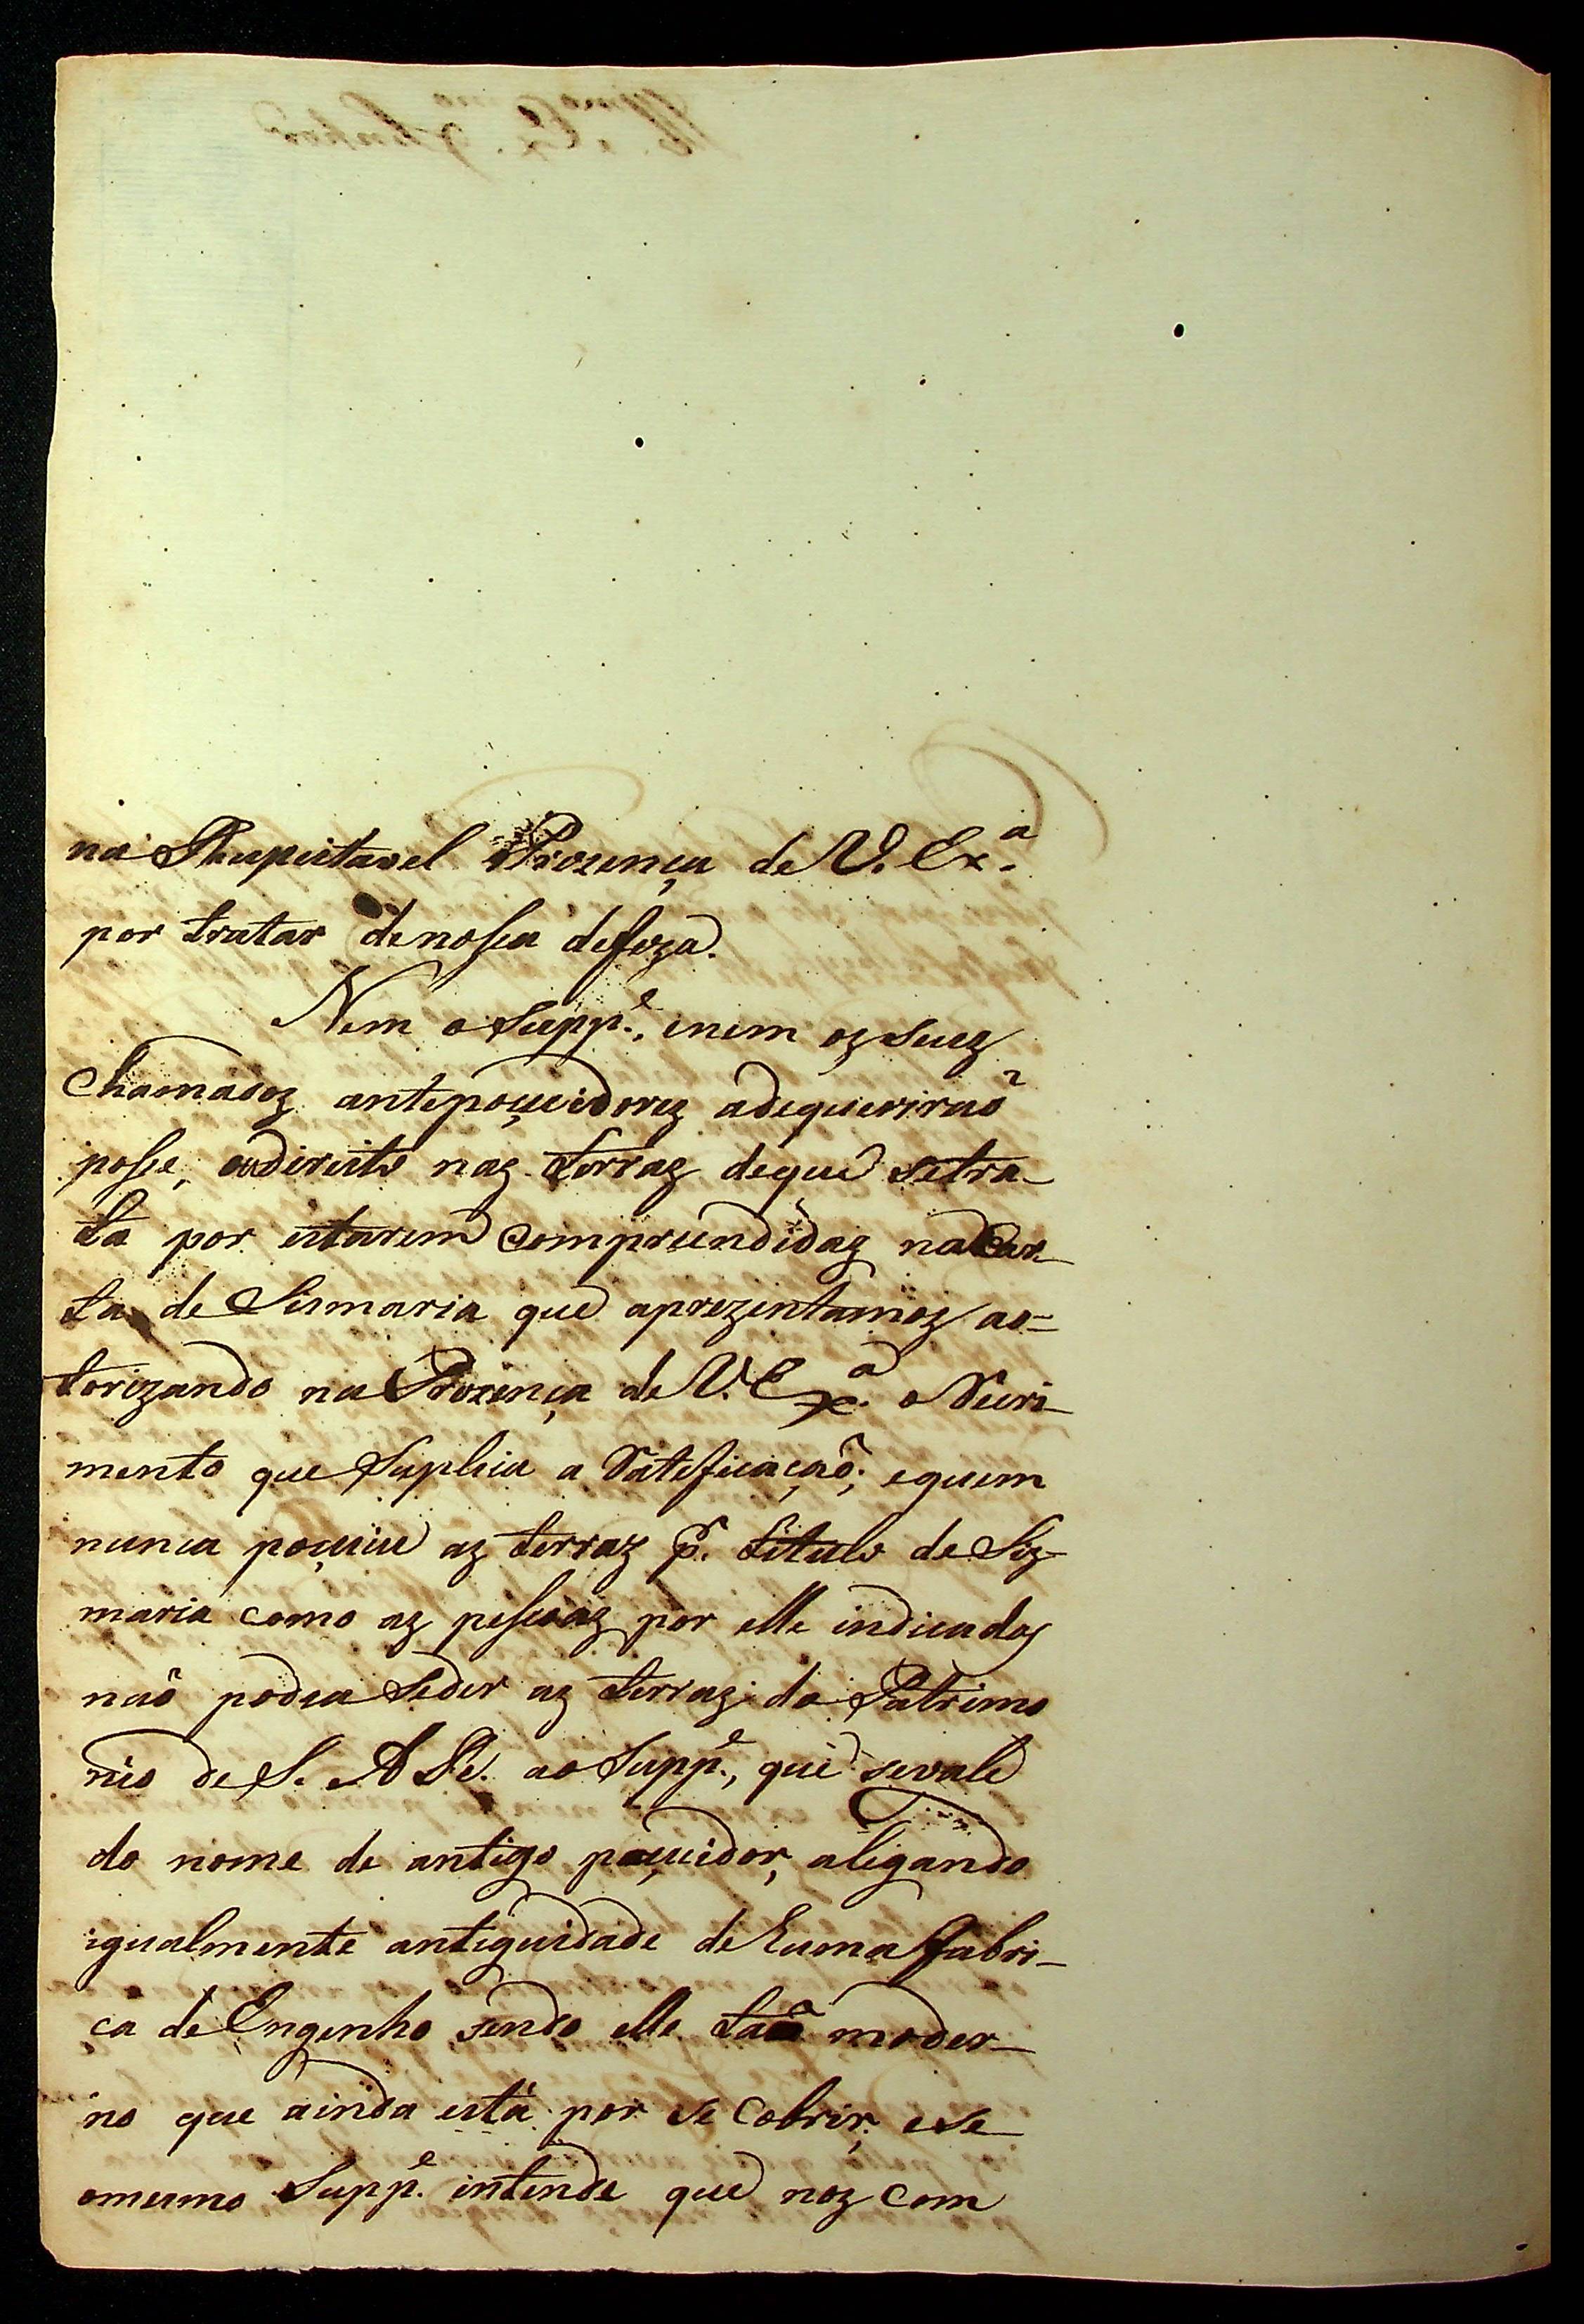 na Respeitavel Prezença de V. Exª.
por tratar denossa defeza.
Nem o Suppᵉ., enem oz seuz
chamadoz antepoçuidorez adequeriraõ
posse, audireito naz terraz deque setra-
ta por estarem compreendidaz naCar-
ta de Sismaria que aprezentamoz ao=
torizando na Prezença de V. Exª. o Veri-
mento que Suplica a Ratificaçaõ; equem
nunca poçuiu az terraz p.ʳ titulo de Siz-
maria como az pessoaz por elle indicadas
naõ podia Seder az terraz do Patrimo
nio de S. A R. ao Suppᵉ., que sevale
do nome de antigo poçuidor, alegando
igualmente antiguidade de huma fabri-
ca de Engenho sendo elle taõ moder-
no que ainda está por se cobrir; ese
omesmo Suppᵉ. intende que noz com